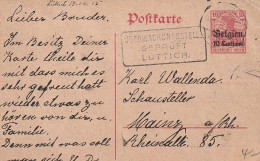 Lüttich 15.12.15
Lieber Bruder.
Im Besitz Deiner
Karte theile Dir
mit dass mich es
sehr gefreut hatt
wieder etwas zu
hören von dir, u
Familie.
Denn mit was soll
man sich
Postkarte
GEPRÜFT
LÜTTICH.
Belgien
10 Centimes
Karl Wallenda.
Schausteller
Mainz a/Rh.
Rheinallee 85.